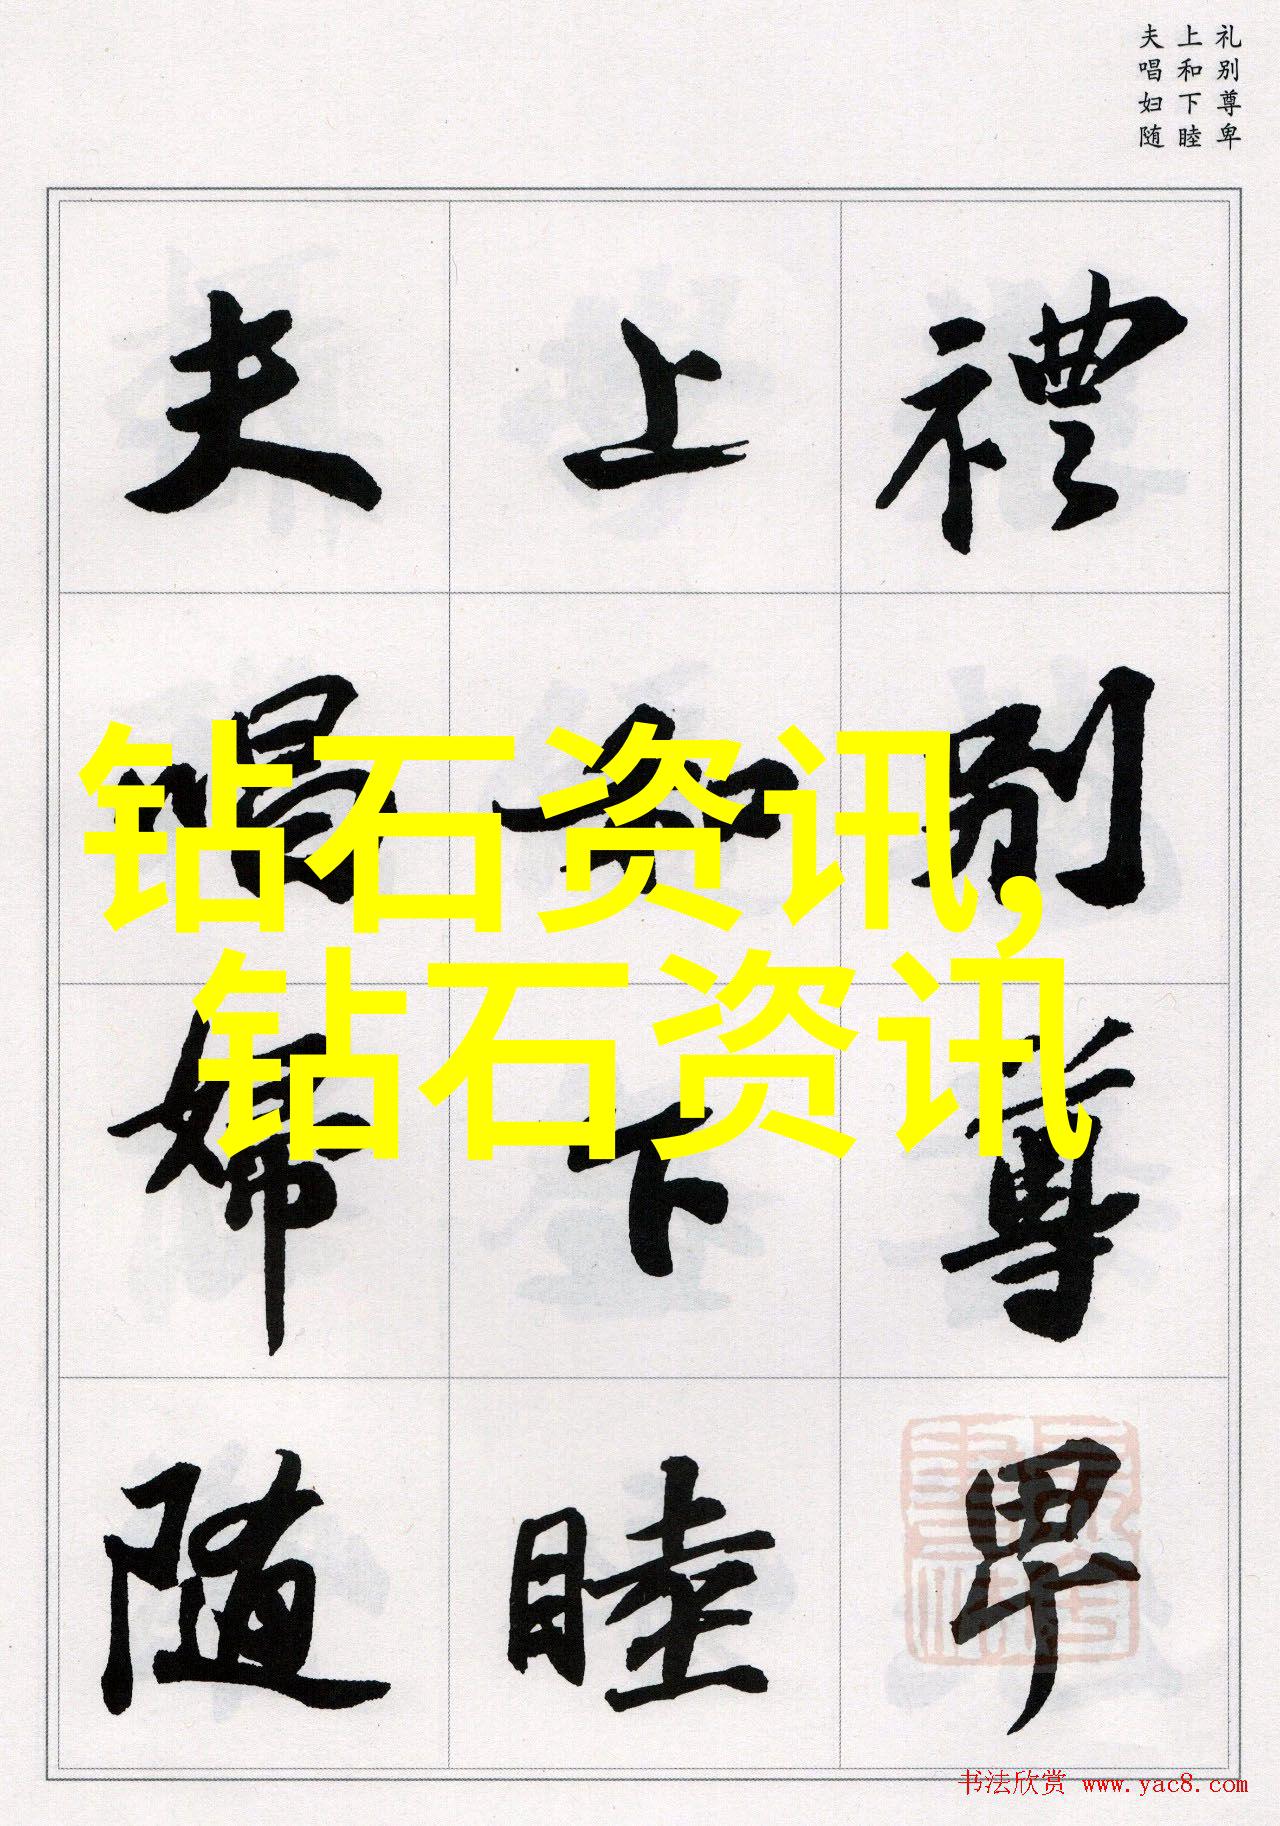 礼别尊卑
上和下睦
夫唱妇随
禮别尊卑
上和下睦
夫唱婦随
钻石资讯,
钻石资讯
书法欣赏 www.yac8.com